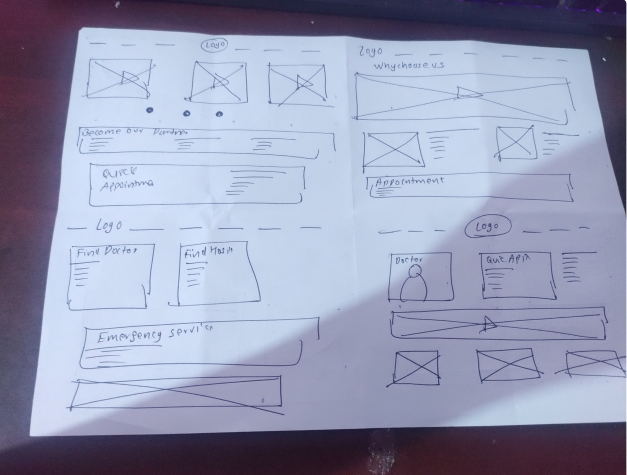 Logo
Become our Partner
Quick
Appointme
Logo
Why choose us
Appointment
Logo
Find Doctor
Find Hosp
Emergency service
Logo
Doctor